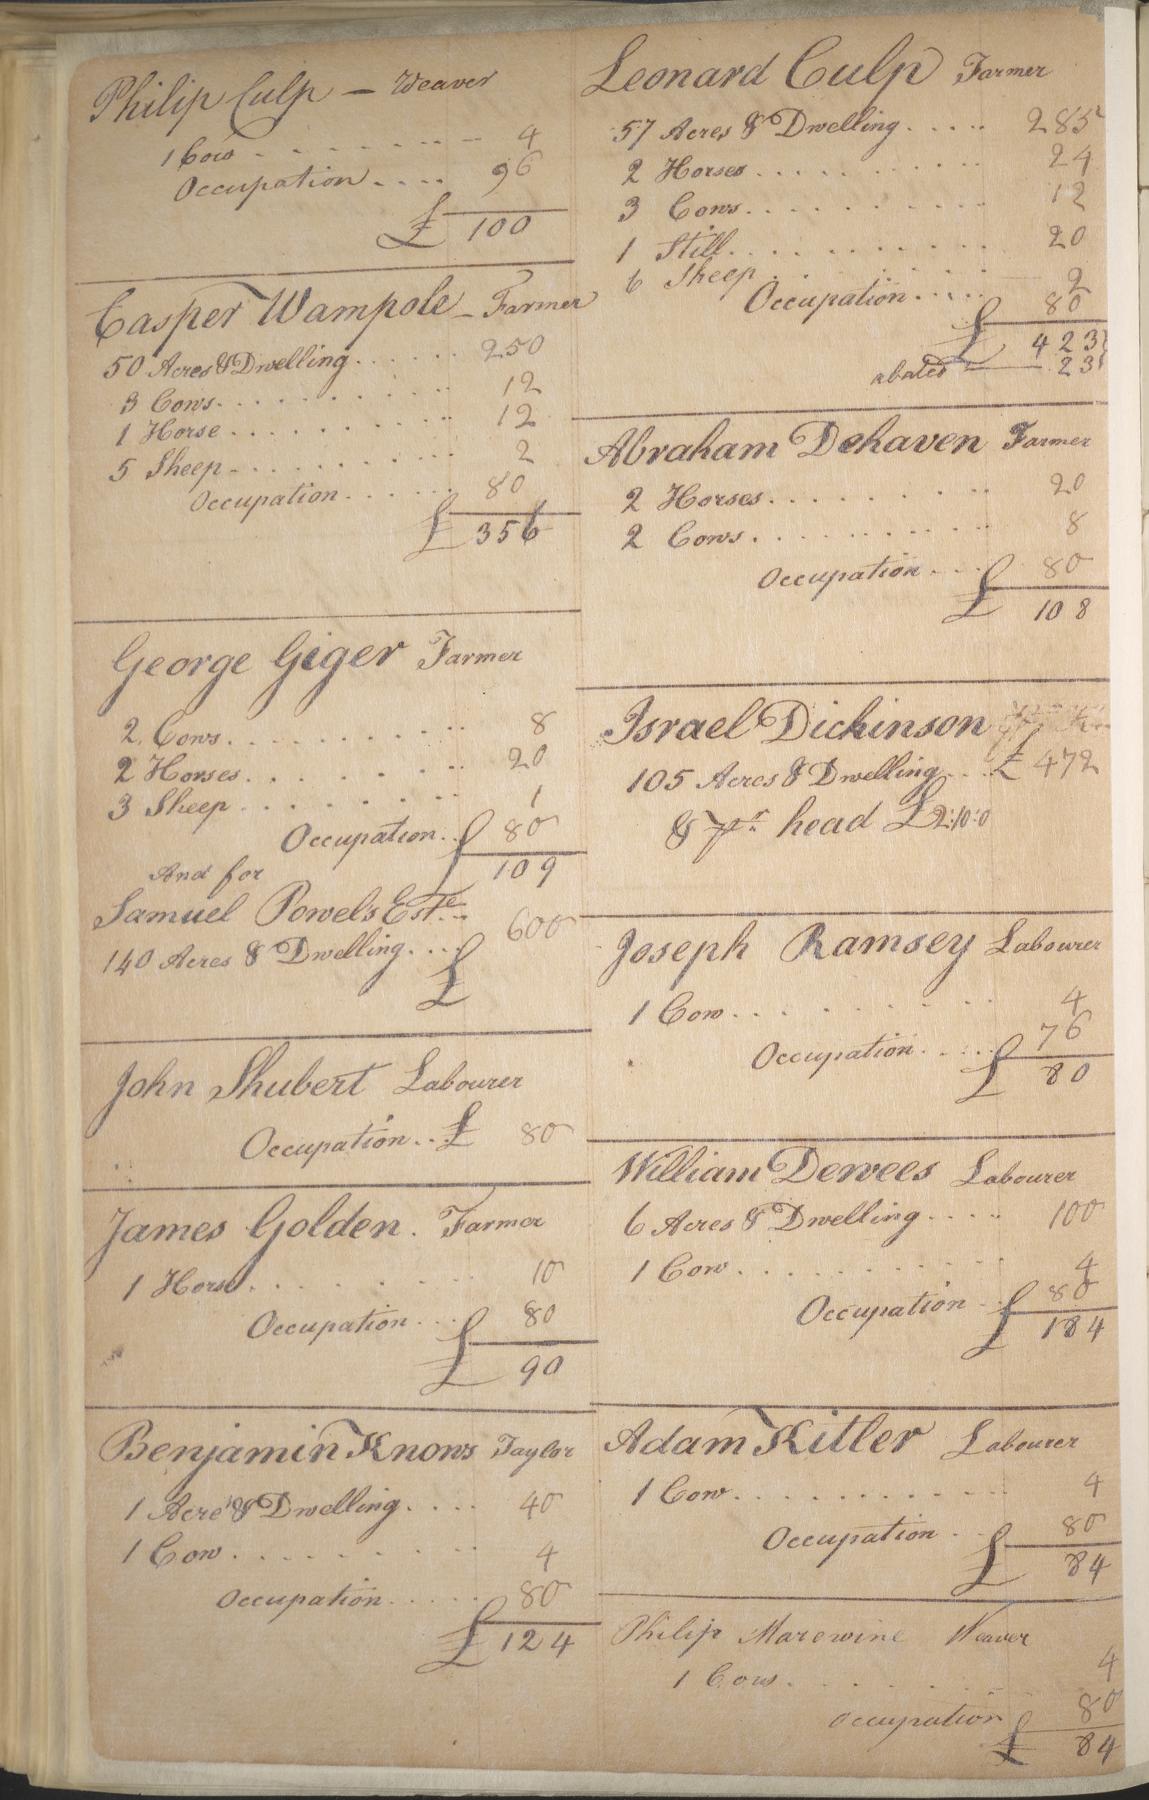 Philip Culp – Weaver
1 Cow 4
Occupation 96
£ 100
Casper Wampole – Farmer
50 Acres & Dwelling 250
3 Cows 12
1 Horse 12
5 Sheep 2
Occupation 80
£ 356
George Giger Farmer
2 Cows 8
2 Horses 20
3 Sheep 1
Occupation 80
£ 109
And for
Samuel Powels Este
140 Acres & Dwelling 600
£
John Shubert Labourer
Occupation £ 80
James Golden. Farmer
1 Horse 10
Occupation 80
£ 90
Benjamin Knows Taylor
1 Acre & Dwelling 40
1 Cow 4
Occupation 80
£ 124
Leonard Culp Farmer
57 Acres & Dwelling 285
2 Horses 24
3 Cows 12
1 Still 20
6 Sheep 2
Occupation 80
£ 423
abated 23
Abraham Dehaven Farmer
2 Horses 20
2 Cows 8
Occupation 80
£ 108
Israel Dickinson
105 Acres & Dwelling £ 472
& pr head £2:10:0
Joseph Ramsey Labourer
1 Cow 4
Occupation 76
£ 80
William Dewees Labourer
6 Acres & Dwelling 100
1 Cow 4
Occupation 80
£ 184
Adam Kitler Labourer
1 Cow 4
Occupation 80
£ 84
Philip Marewine Weaver
1 Cow 4
Occupation 80
£ 84